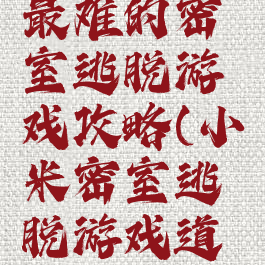 最难的密
室逃脱游
戏攻略(小
米密室逃
脱游戏道